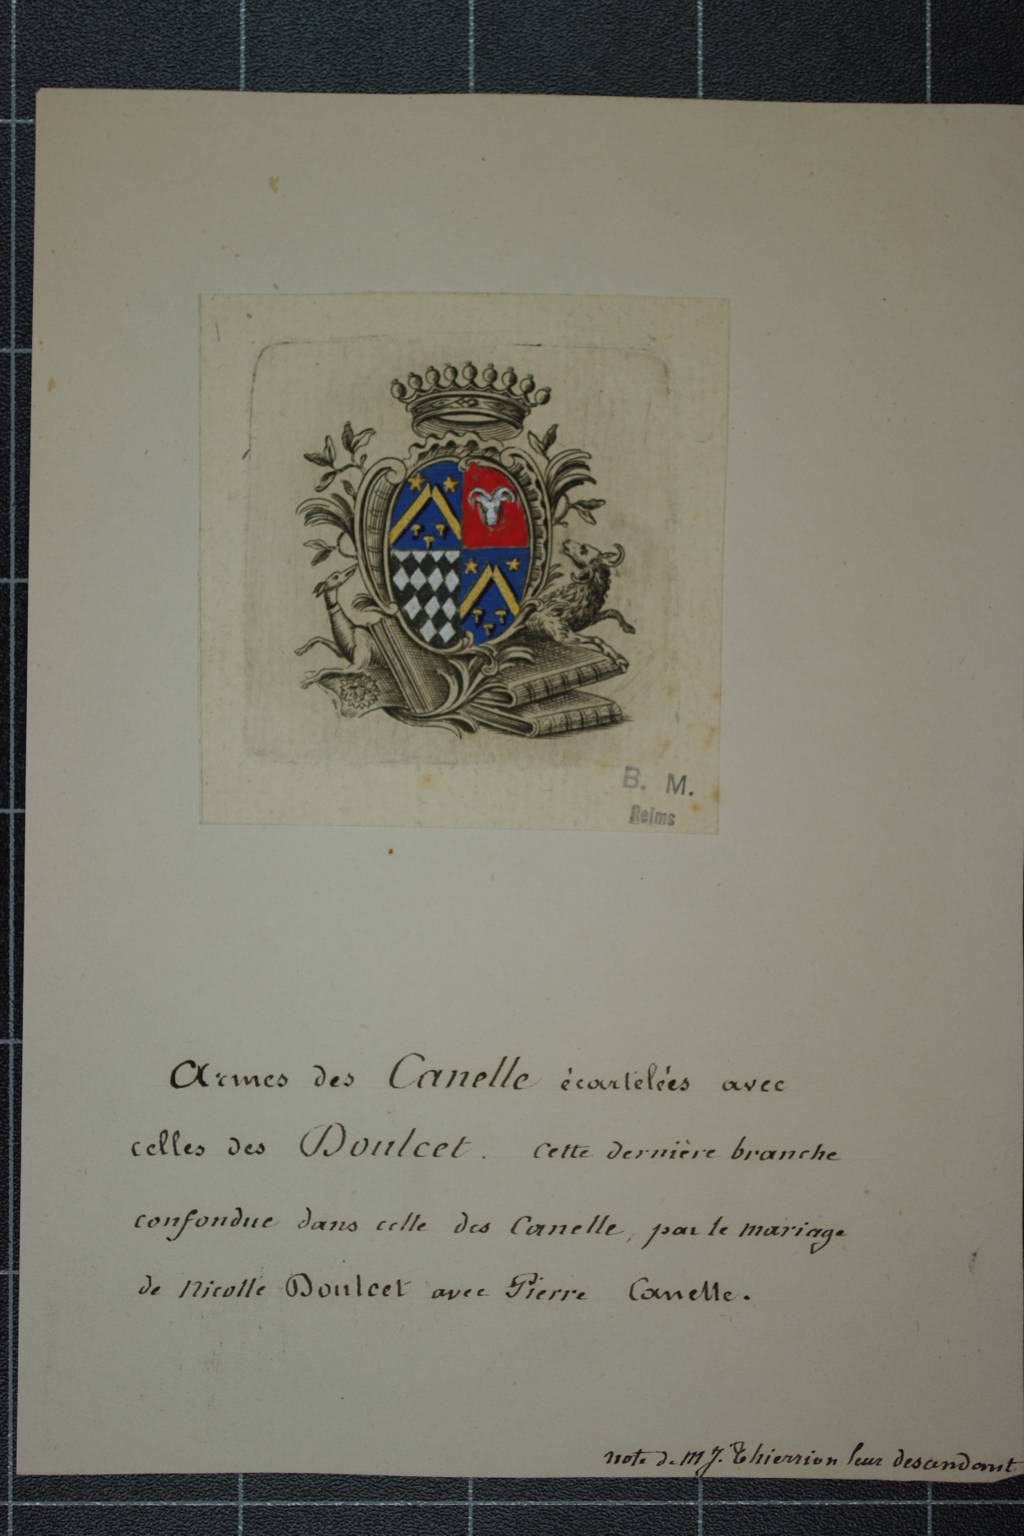 B. M.
Reims
Armes des Canelle écartelées avec
celles des Doulcet. Cette dernière branche
confondue dans celle des Canelle, par le mariage
de Nicolle Doulcet avec Pierre Canelle.
note de M J. Thierrion leur descendant